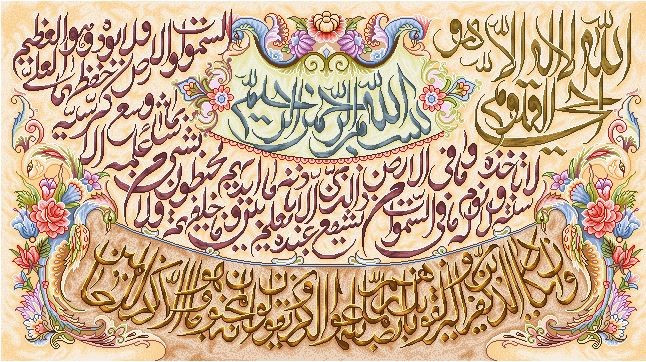 بسم الله الرحمن الرحيم
الله لا اله الا هو
الحي القيوم
لا تاخذه سنة ولا نوم له ما في السموات وما في الارض
من ذا الذي يشفع عنده الا باذنه يعلم ما بين ايديهم وما خلفهم
ولا يحيطون بشيء من علمه الا بما شاء وسع كرسيه
السموات والارض ولا يؤده حفظهما وهو العلي العظيم
وان يكاد الذين كفروا ليزلقونك بابصارهم لما سمعوا الذكر ويقولون انه لمجنون وما هو الا ذكر للعالمين